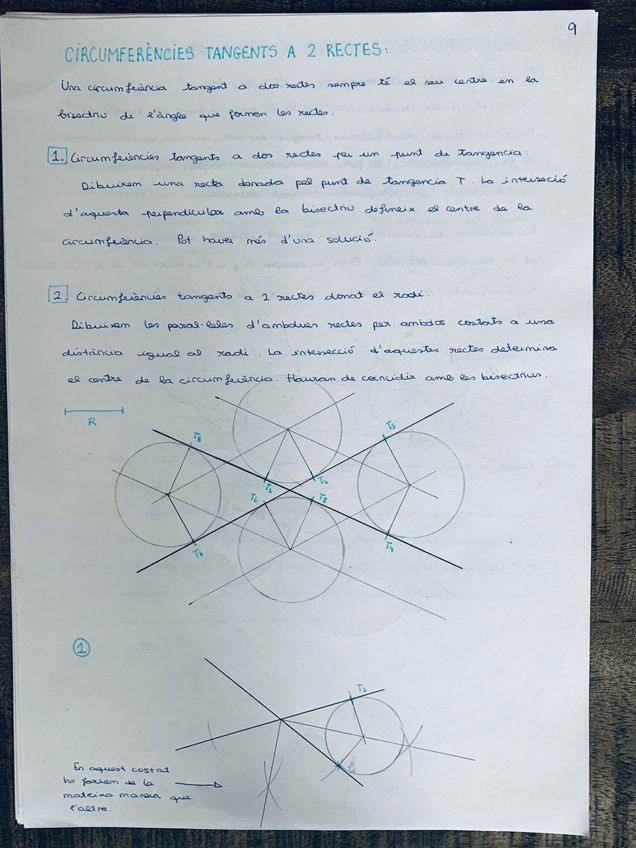 9
CIRCUMFERÈNCIES TANGENTS A 2 RECTES:
Una circumferència tangent a dos rectes sempre té el seu centre en la
bisectriu de l'angle que formen les rectes.
1. Circumferències tangents a dos rectes per un punt de tangencia:
Dibuixem una recta donada pel punt de tangencia T. La interseció
d'aquesta perpendicular amb la bisectriu defineix el centre de la
circumferència. Pot haver més d'una solució.
2. Circumferències tangents a 2 rectes donat el radi.
Dibuixem les paral·leles d'ambdues rectes per ambdos costats a una
distància igual al radi. La intersecció d'aquestes rectes determina
el centre de la circumferència. Hauran de coincidir amb les bisectrius.
R
1
En aquest costat
ho farem de la
mateixa manera que
l'altre.